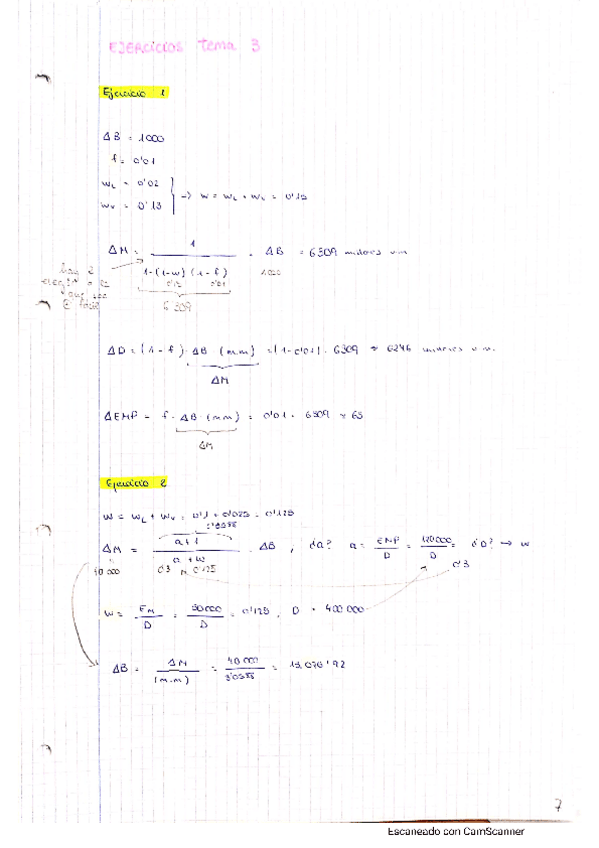 EJERCICIOS tema 3
Ejercicio 1
ΔB = 1000
f = 0'01
WL = 0'02
Wv = 0'13
→ W = WL + Wv = 0'15
ΔM = 1 / 1-(1-w)(1-f) · ΔB = 6309 millones u.m.
0'15 0'01 1000
hay 2
6'309
ΔD = (1-f) · ΔB · (m.m) = (1-0'01) · 6309 ≈ 6246 millones u.m.
ΔM
ΔEMP = f · ΔB · (m.m) = 0'01 · 6309 ≈ 63
ΔM
Ejercicio 2
W = WL + Wv = 0'1 + 0'025 = 0'125
ΔM = a+1 / a+w · ΔB , ¿a? a = EMP / D = 120000 / D = ¿D? → w
40 000 0'3 0'125 0'3
W = EM / D = 50000 / D = 0'125 , D = 400 000
ΔB = ΔM / (m.m) = 40 000 / 3'0588 = 13.076'92
7
Escaneado con CamScanner